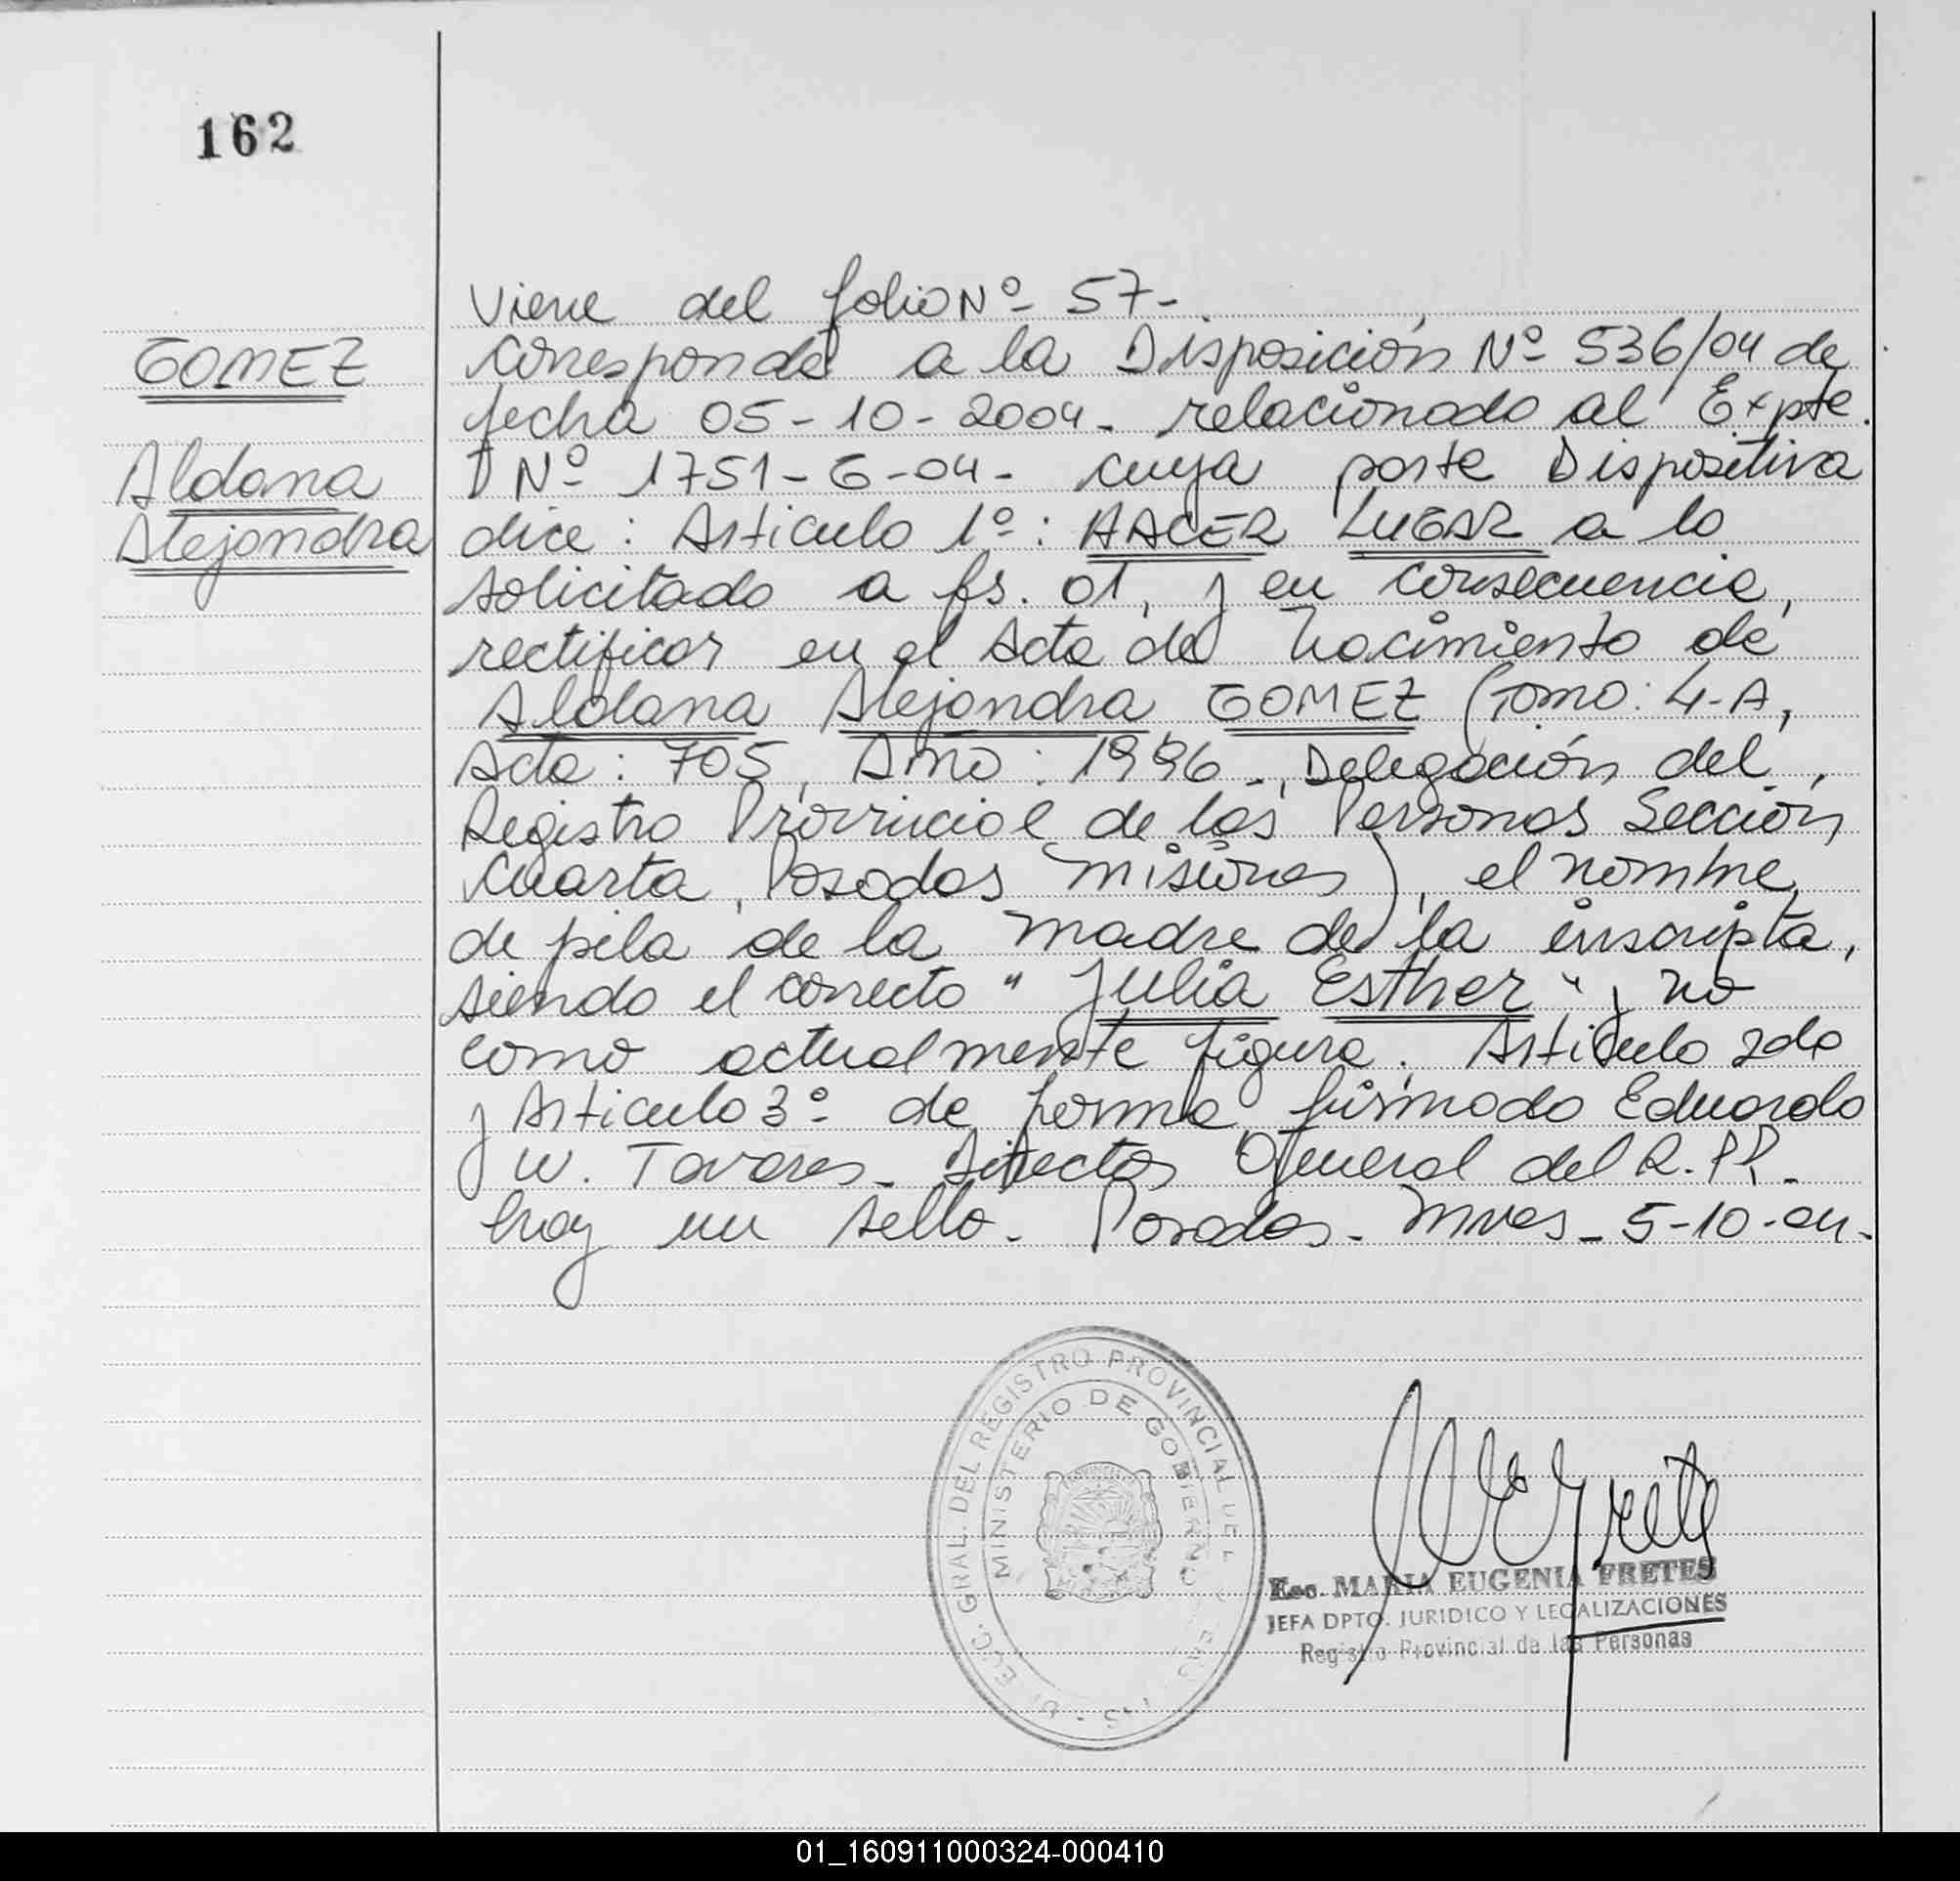 162
GOMEZ
Aldana
Alejandra
Viene del folio Nº 57-
Corresponde a la Disposición Nº 536/04 de
fecha 05-10-2004- relacionado al Expte.
Nº 1751-G-04- cuya parte Dispositiva
dice: Articulo 1º: HACER LUGAR a lo
solicitado a fs. 01, y en consecuencia,
rectificar en el Acta de Nacimiento de
Aldana Alejandra GOMEZ (Tomo: 4-A,
Acta: 705, Año: 1996-, Delegación del
Registro Provincial de las Personas Sección
Cuarta, Posadas Misiones), el nombre
de pila de la madre de la inscripta,
siendo el correcto "Julia Esther" y no
como actualmente figura. Articulo 2do
y Articulo 3º de forma firmado Eduardo
W. Tavares- Director General del R.P.P.-
hay un sello- Posadas- Mnes- 5-10-04-
DIRECC. GRAL. DEL REGISTRO PROVINCIAL DE L
MINISTERIO DE GOBIERNO
PROVINCIA
MEFretes
Esc. MARIA EUGENIA FRETES
JEFA DPTO. JURIDICO Y LEGALIZACIONES
Registro Provincial de las Personas
01_160911000324-000410